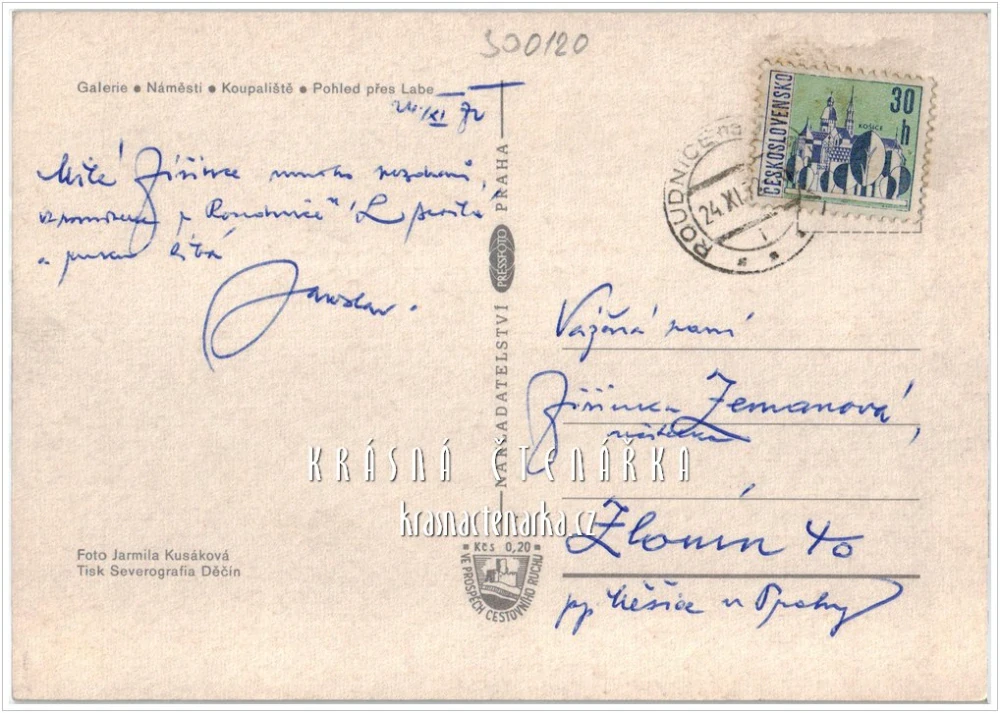 300120
Galerie • Náměstí • Koupaliště • Pohled přes Labe
24. XI. 72
Milé Jiřince mnoho pozdravů,
vzpomínku z Roudnice
a
Jaroslav.
NAKLADATELSTVÍ PRESSFOTO PRAHA
ČESKOSLOVENSKO
30 h
KOŠICE
ROUDNICE na
24.XI.7
1
Vážená paní
Jiřinka Zemanová,
učitelka
Zlonín 40
pp Měšice u Prahy
KRÁSNÁ ČTENÁŘKA
krasnactenarka.cz
Kčs 0,20
VE PROSPĚCH CESTOVNÍHO RUCHU
Foto Jarmila Kusáková
Tisk Severografia Děčín